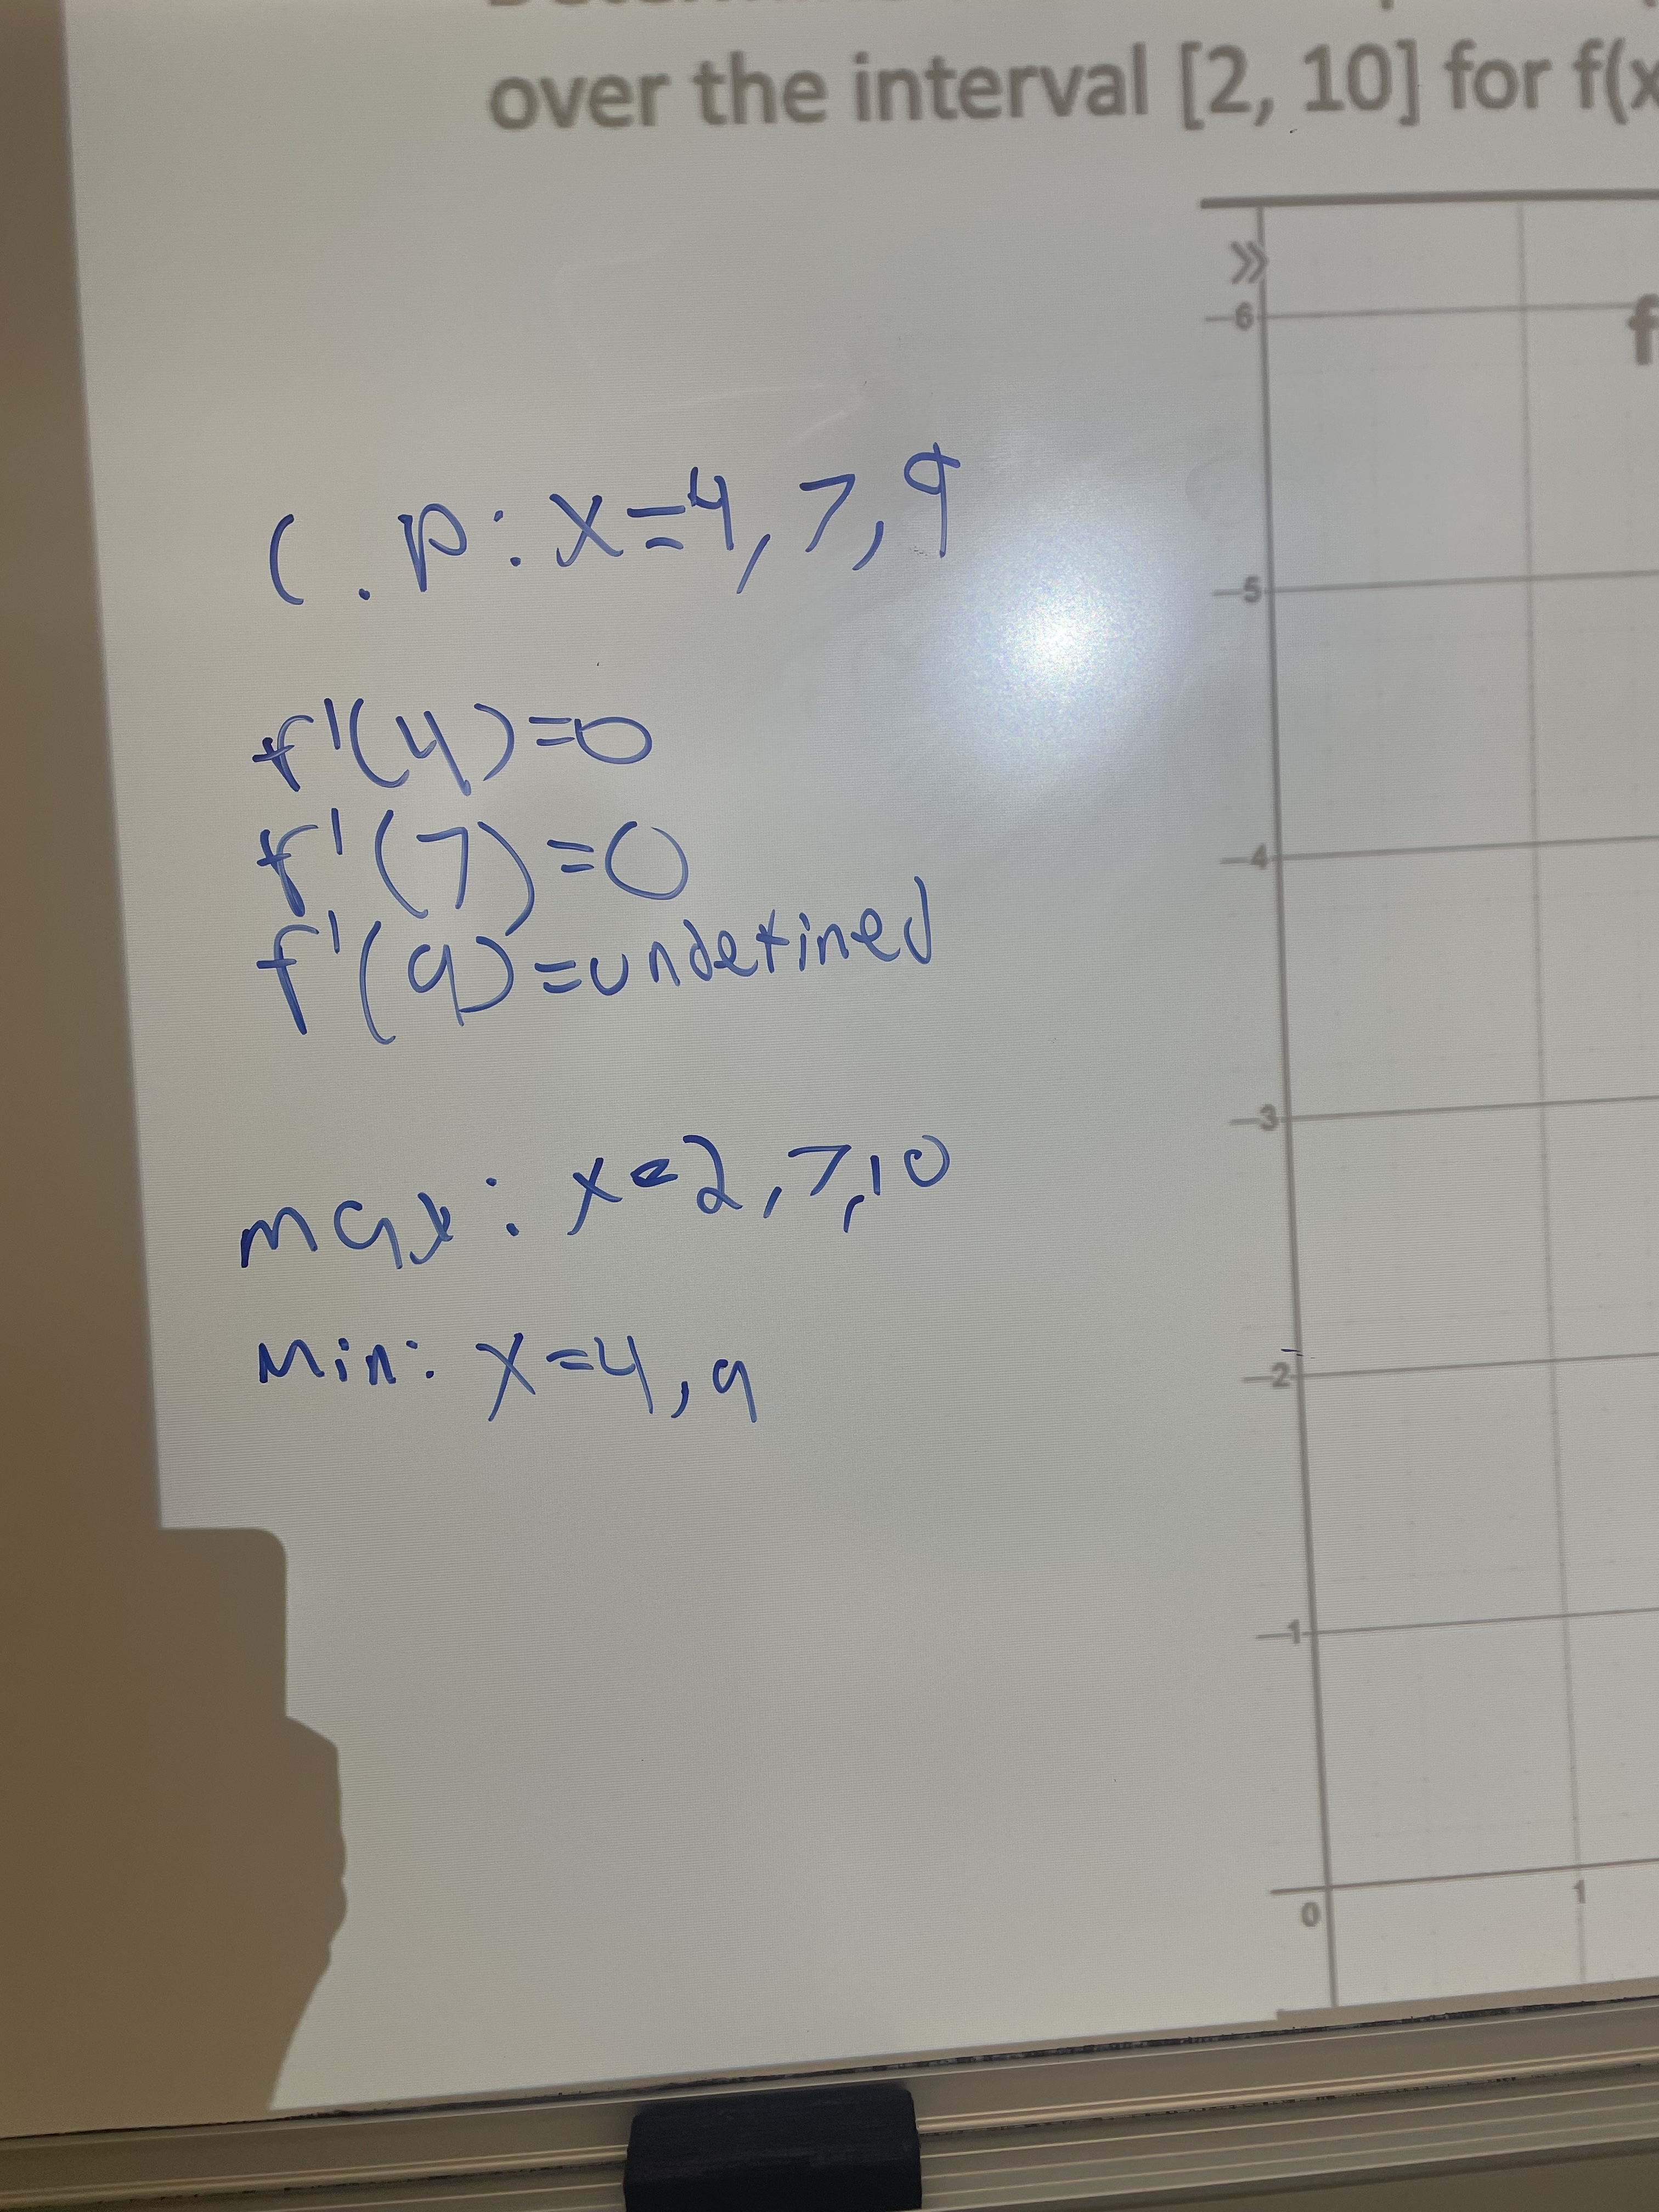 over the interval [2, 10] for f(x
6
f
C.P: x=4, 7, 9
5
f'(4)=0
4
f'(7)=0
f'(9)=undefined
3
max: x=2, 7, 10
Min: x=4, 9
2
1
0
1